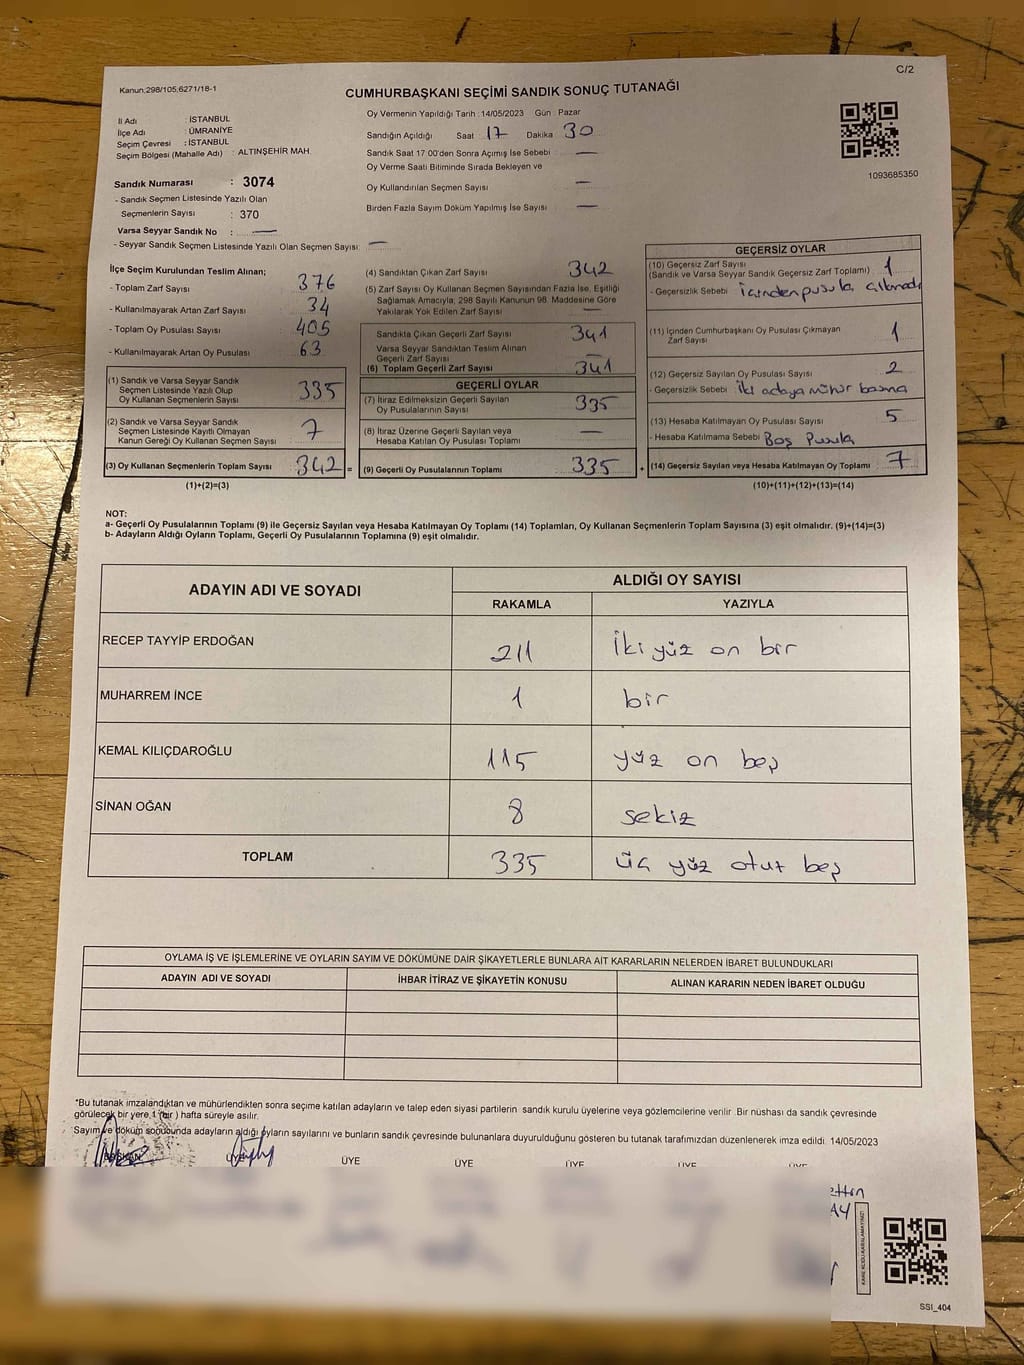 C/2
Kanun:298/105,6271/18-1
CUMHURBAŞKANI SEÇİMİ SANDIK SONUÇ TUTANAĞI
İl Adı : İSTANBUL
İlçe Adı : ÜMRANİYE
Seçim Çevresi : İSTANBUL
Seçim Bölgesi (Mahalle Adı) : ALTINŞEHİR MAH.
Sandık Numarası : 3074
- Sandık Seçmen Listesinde Yazılı Olan
Seçmenlerin Sayısı : 370
Varsa Seyyar Sandık No : —
- Seyyar Sandık Seçmen Listesinde Yazılı Olan Seçmen Sayısı: —
Oy Vermenin Yapıldığı Tarih : 14/05/2023 Gün : Pazar
Sandığın Açıldığı Saat 17 Dakika 30
Sandık Saat 17:00'den Sonra Açımış İse Sebebi : —
Oy Verme Saati Bitiminde Sırada Bekleyen ve
Oy Kullandırılan Seçmen Sayısı : —
Birden Fazla Sayım Döküm Yapılmış İse Sayısı : —
1093685350
İlçe Seçim Kurulundan Teslim Alınan;
- Toplam Zarf Sayısı : 376
- Kullanılmayarak Artan Zarf Sayısı : 34
- Toplam Oy Pusulası Sayısı : 405
- Kullanılmayarak Artan Oy Pusulası : 63
(1) Sandık ve Varsa Seyyar Sandık
Seçmen Listesinde Yazılı Olup
Oy Kullanan Seçmenlerin Sayısı : 335
(2) Sandık ve Varsa Seyyar Sandık
Seçmen Listesinde Kayıtlı Olmayan
Kanun Gereği Oy Kullanan Seçmen Sayısı : 7
(3) Oy Kullanan Seçmenlerin Toplam Sayısı : 342 =
(1)+(2)=(3)
(4) Sandıktan Çıkan Zarf Sayısı : 342
(5) Zarf Sayısı Oy Kullanan Seçmen Sayısından Fazla İse, Eşitliği
Sağlamak Amacıyla, 298 Sayılı Kanunun 98. Maddesine Göre
Yakılarak Yok Edilen Zarf Sayısı : —
Sandıkta Çıkan Geçerli Zarf Sayısı : 341
Varsa Seyyar Sandıktan Teslim Alınan
Geçerli Zarf Sayısı : —
(6) Toplam Geçerli Zarf Sayısı : 341
GEÇERLİ OYLAR
(7) İtiraz Edilmeksizin Geçerli Sayılan
Oy Pusulalarının Sayısı : 335
(8) İtiraz Üzerine Geçerli Sayılan veya
Hesaba Katılan Oy Pusulası Toplamı : —
(9) Geçerli Oy Pusulalarının Toplamı : 335 +
GEÇERSİZ OYLAR
(10) Geçersiz Zarf Sayısı : 1
(Sandık ve Varsa Seyyar Sandık Geçersiz Zarf Toplamı)
- Geçersizlik Sebebi : İçinden pusula çıkmadı
(11) İçinden Cumhurbaşkanı Oy Pusulası Çıkmayan
Zarf Sayısı : 1
(12) Geçersiz Sayılan Oy Pusulası Sayısı : 2
- Geçersizlik Sebebi : İki adaya mühür basma
(13) Hesaba Katılmayan Oy Pusulası Sayısı : 5
- Hesaba Katılmama Sebebi : Boş Pusula
(14) Geçersiz Sayılan veya Hesaba Katılmayan Oy Toplamı : 7
(10)+(11)+(12)+(13)=(14)
NOT:
a- Geçerli Oy Pusulalarının Toplamı (9) ile Geçersiz Sayılan veya Hesaba Katılmayan Oy Toplamı (14) Toplamları, Oy Kullanan Seçmenlerin Toplam Sayısına (3) eşit olmalıdır. (9)+(14)=(3)
b- Adayların Aldığı Oyların Toplamı, Geçerli Oy Pusulalarının Toplamına (9) eşit olmalıdır.
ADAYIN ADI VE SOYADI ALDIĞI OY SAYISI
RAKAMLA YAZIYLA
RECEP TAYYİP ERDOĞAN 211 İki yüz on bir
MUHARREM İNCE 1 bir
KEMAL KILIÇDAROĞLU 115 yüz on beş
SİNAN OĞAN 8 sekiz
TOPLAM 335 üç yüz otuz beş
OYLAMA İŞ VE İŞLEMLERİNE VE OYLARIN SAYIM VE DÖKÜMÜNE DAİR ŞİKAYETLERLE BUNLARA AİT KARARLARIN NELERDEN İBARET BULUNDUKLARI
ADAYIN ADI VE SOYADI İHBAR İTİRAZ VE ŞİKAYETİN KONUSU ALINAN KARARIN NEDEN İBARET OLDUĞU
*Bu tutanak imzalandıktan ve mühürlendikten sonra seçime katılan adayların ve talep eden siyasi partilerin sandık kurulu üyelerine veya gözlemcilerine verilir. Bir nüshası da sandık çevresinde
görülecek bir yere 1 (bir) hafta süreyle asılır.
Sayım ve döküm sonucunda adayların aldığı oyların sayılarını ve bunların sandık çevresinde bulunanlara duyurulduğunu gösteren bu tutanak tarafımızdan düzenlenerek imza edildi. 14/05/2023
BAŞKAN ÜYE ÜYE ÜYE ÜYE ÜYE ÜYE
SSI_404